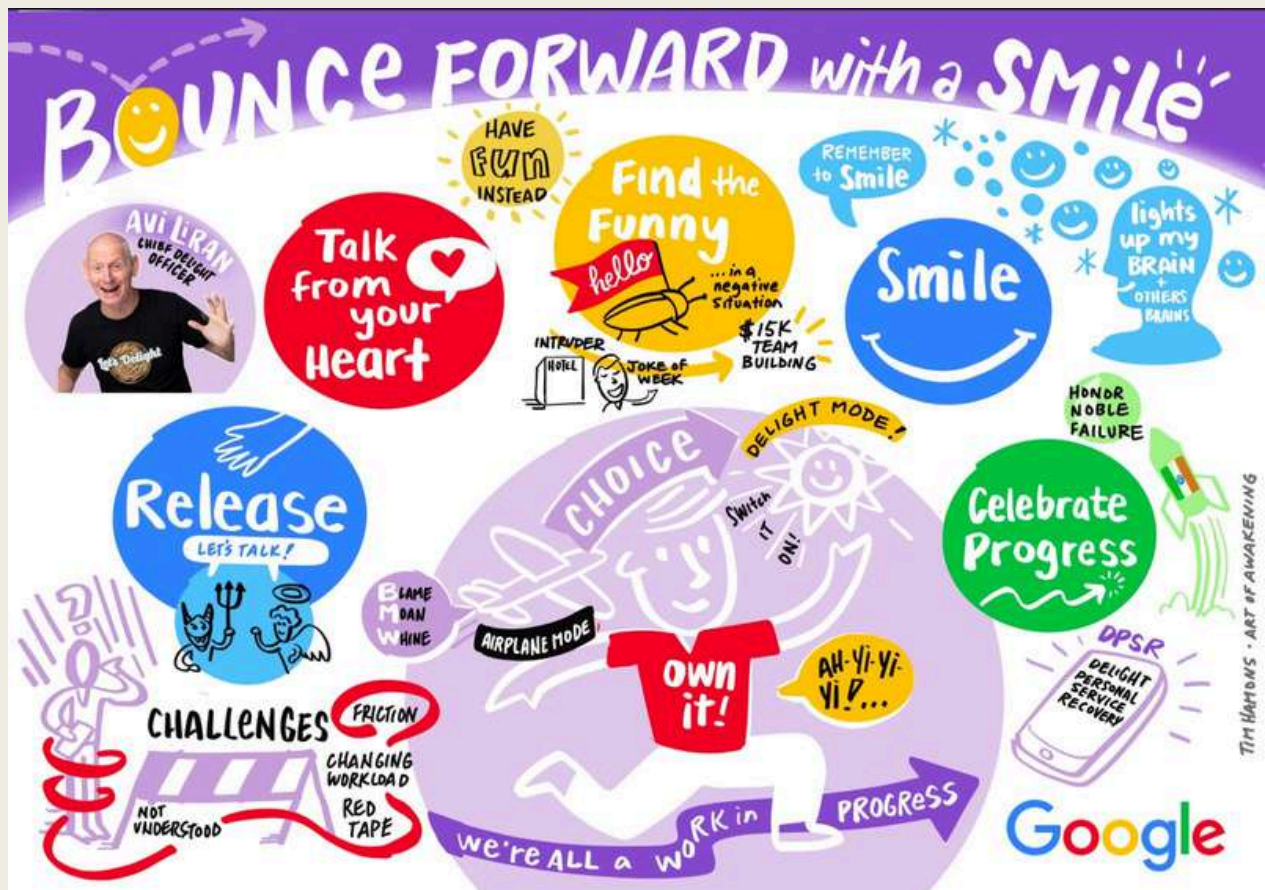 BOUNCE FORWARD with a SMiLe
AVI LIRAN
CHIEF DELIGHT
OFFICER
Let's Delight
Talk
from
your
Heart
HAVE
FUN
INSTEAD
Find the
Funny
hello
...in a
negative
situation
INTRUDER
HOTEL
JOKE OF
WEEK
$15K
TEAM
BUILDING
REMEMBER
to Smile
Smile
lights
up my
BRAIN
+
OTHERS
BRAINS
Release
LET'S TALK!
BLAME
MOAN
WHINE
AIRPLANE MODE
CHOICE
DELIGHT MODE!
SWITCH
IT
ON!
OWN
it!
AH-Yi-Yi-
Yi!...
HONOR
NOBLE
FAILURE
Celebrate
Progress
DPSR
DELIGHT
PERSONAL
SERVICE
RECOVERY
?
CHALLENGES
FRICTION
CHANGING
WORKLOAD
RED
TAPE
NOT
UNDERSTOOD
We're ALL a WORK in PROGRESS
TIM HAMONS • ART OF AWAKENING
Google